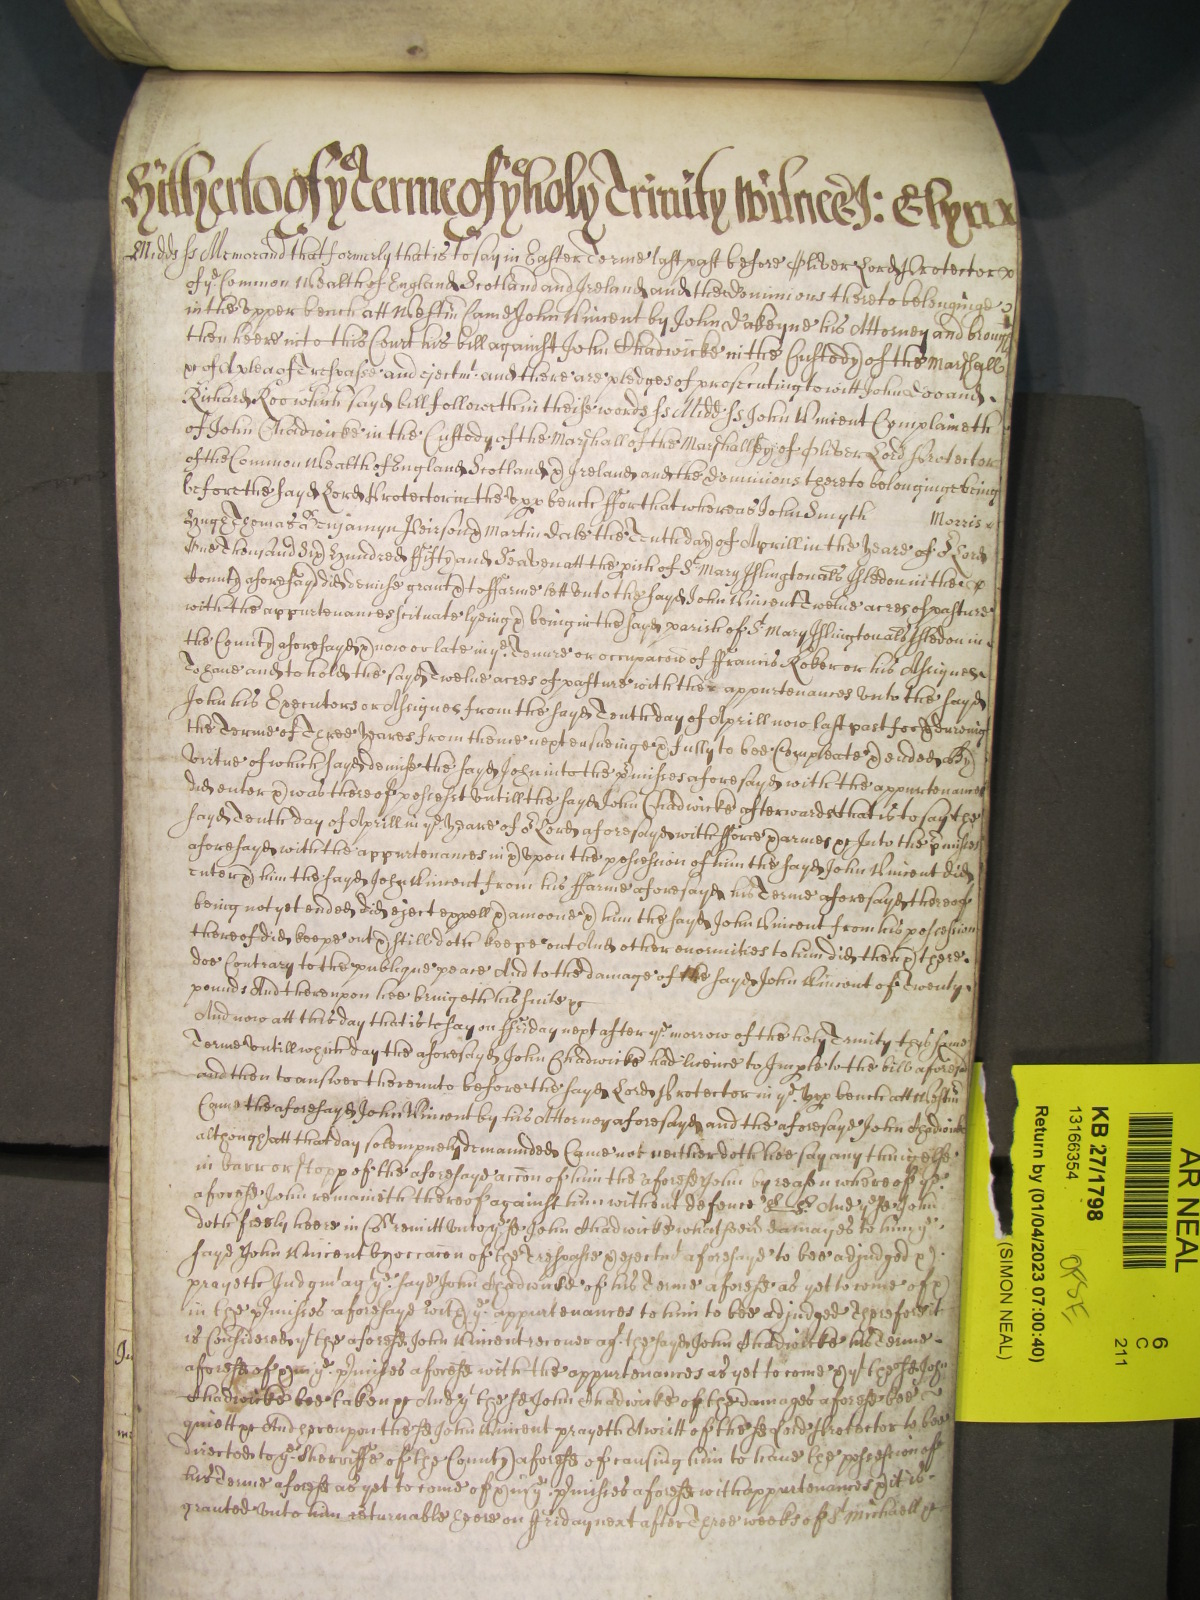 Hitherto of ye Terme of ye holy Trinity Witnes J:
Midds ss Memorand that formerly that is to say in Easter Terme last past before Oliver Lord Protector
of ye Common Wealth of England Scotland and Ireland and the Dominions thereto belonginge
in the upper bench att Westm Came John Vincent by John Dakeyne his Attorney and brought
then heere into this Court his bill against John Chadwicke in the Custody of the Marshall
&c of A plea of Trespasse and ejectmt and there are pledges of prosecuting to witt John Doo and
Richard Roo which sayd bill followeth in theise words ss Midd ss John Vincent Complaineth
of John Chadwicke in the Custody of the Marshall of the Marshallsey of Oliver Lord Protector
of the Common Wealth of England Scotland & Ireland and the Dominions thereto belonginge being
before the sayd Lord Protector in the Upp bench ffor that whereas John Smyth Morris
Hugh Thomas Benjamyn Peirson & Martin Dale the Tenth day of Aprill in the yeare of or Lord
One Thousand Six Hundred ffifty and Seaven att the pish of St Mary Islington als Isledon in the
County aforesayd did demise grant & to ffarme lett unto the sayd John Vincent Twelve acres of pasture
with the appurtenances scituate lyeing & being in the sayd parish of St Mary Islington als Isledon in
the County aforesayd & now or late in ye Tenure or occupacon of ffrancis Rober or his Assignes
To have and to hold the sayd Twelve acres of pasture with the appurtenances unto the sayd
John his Executors or Assignes from the sayd Tenth day of Aprill now last past for & dureing
the Terme of Three yeares from thence next ensueinge & fully to bee Compleate & ended By
virtue of which sayd demise the sayd John into the pmisses aforesayd with the appurtenances
did enter & was thereof possesst Untill the sayd John Chadwicke afterwards that is to say the
sayd Tenth day of Aprill in ye yeare of or Lord aforesayd with fforce & armes &c Into the pmisses
aforesayd with the appurtenances in & upon the possession of him the sayd John Vincent did
enter & him the sayd John Vincent from his ffarme aforesayd his Terme aforesayd thereof
being not yet ended did eject expell & amoove & him the sayd John Vincent from his possession
thereof did keepe out & still doth keepe out And other enormities to him did then & there
doe Contrary to the publique peace And to the damage of the sayd John Vincent of Twenty
pounds And thereupon hee bringeth his suite &c
And now att this day that is to say on ffriday next after ye morrow of the holy Trinity this same
Terme Untill which day the aforesayd John Chadwicke had licence to Imple to the bill aforesd
and then to answer thereunto before the sayd Lord Protector in ye Upp bench att Westm
Came the aforesayd John Vincent by his Attorney aforesayd and the aforesayd John Chadwicke
although att that day solempnely demaunded Came not neither doth hee say any thing else
in barr or stopp of the aforesayd accon of him the aforesd John by reason whereof ye
aforesd John remaineth thereof against him without defence &c And ye sd John
doth freely heere in Crt remitt unto ye sd John Chadwicke whatsoever damages to him ye
sayd John Vincent by occacon of the Trespasse & ejectmt aforesayd to bee adjudged &
prayeth Judgmt agt ye sayd John Chadwicke of his Terme aforesd as yet to come of &
in the pmisses aforesayd with ye appurtenances to him to bee adjudged Therefore it
is Considered yt the aforesd John Vincent recover agt the sayd John Chadwicke his Terme
aforesd of & in ye pmisses aforesd with the appurtenances as yet to come & yt the sd John
Chadwicke bee taken &c And yt the sd John Chadwicke of the damages aforesd bee
quiett &c And hereupon the sd John Vincent prayeth A writt of the sd Lord Protector to bee
directed to ye Sherriffe of the County aforesd of causing him to have the possession of
his Terme aforesd as yet to come of & in ye pmisses aforesd with appurtenances & it is
granted unto him returnable heere on ffriday next after Three weekes of St Michaell &c
AR NEAL
6
C
211
KB 27/1798
13166354
Return by (01/04/2023 07:00:40)
(SIMON NEAL)